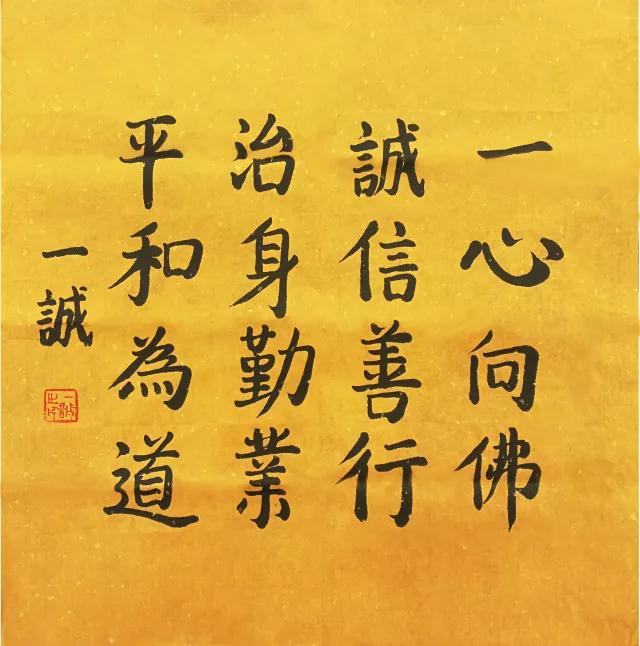 一心向佛
誠信善行
治身勤業
平和為道
一誠
一誠之印